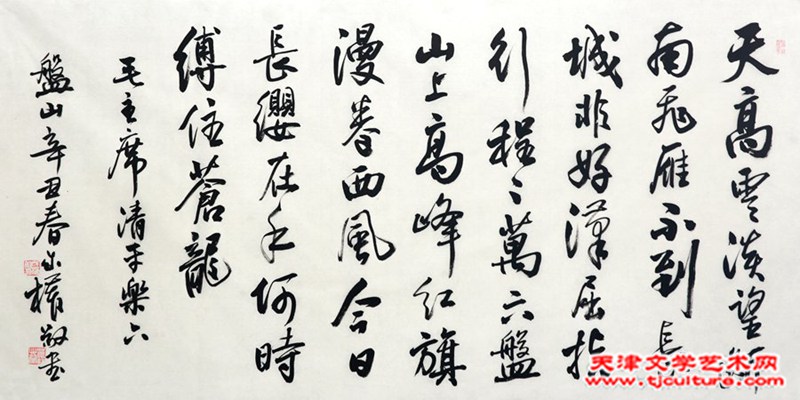 天高雲淡望斷
南飛雁不到長
城非好漢屈指
行程二萬六盤
山上高峰紅旗
漫卷西風今日
長纓在手何時
縛住蒼龍
毛主席清平樂六
盤山辛丑春權敬書
天津文学艺术网
www.tjculture.com